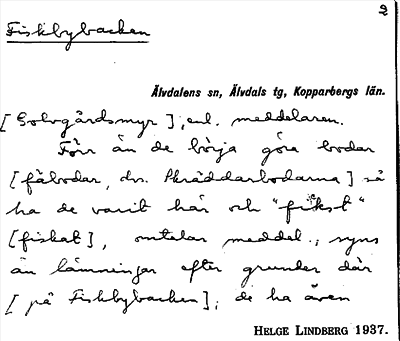 2
Fiskbybacken
Älvdalens sn, Älvdals tg, Kopparbergs län.
[Golvgårdsmyr], enl. meddelaren.
Förr än de börja göra bodar
[fäbodar, dvs. Skräddarbodarna] så
ha de varit här och "fikst"
[fiskat], omtalar meddel.; syns
än lämningar efter grunder där
[på Fiskbybacken]; de ha även
HELGE LINDBERG 1937.